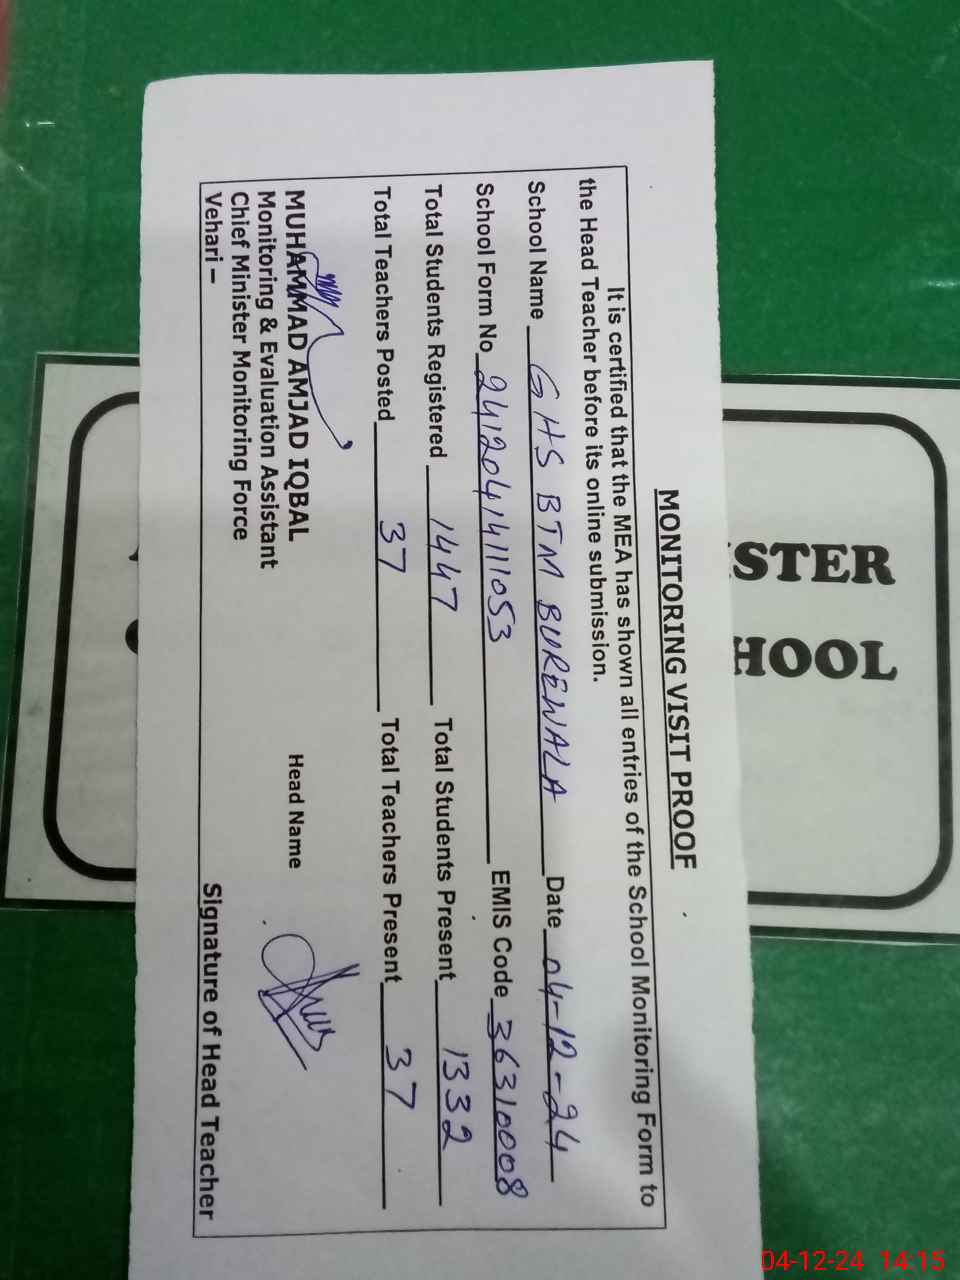 MONITORING VISIT PROOF
It is certified that the MEA has shown all entries of the School Monitoring Form to
the Head Teacher before its online submission.
School Name GHS BTM BUREWALA Date 04-12-24
School Form No 2412041411053 EMIS Code 36310008
Total Students Registered 1447 Total Students Present 1332
Total Teachers Posted 37 Total Teachers Present 37
MUHAMMAD AMJAD IQBAL Head Name
Monitoring & Evaluation Assistant
Chief Minister Monitoring Force
Vehari – Signature of Head Teacher
STER
HOOL
04-12-24 14:15